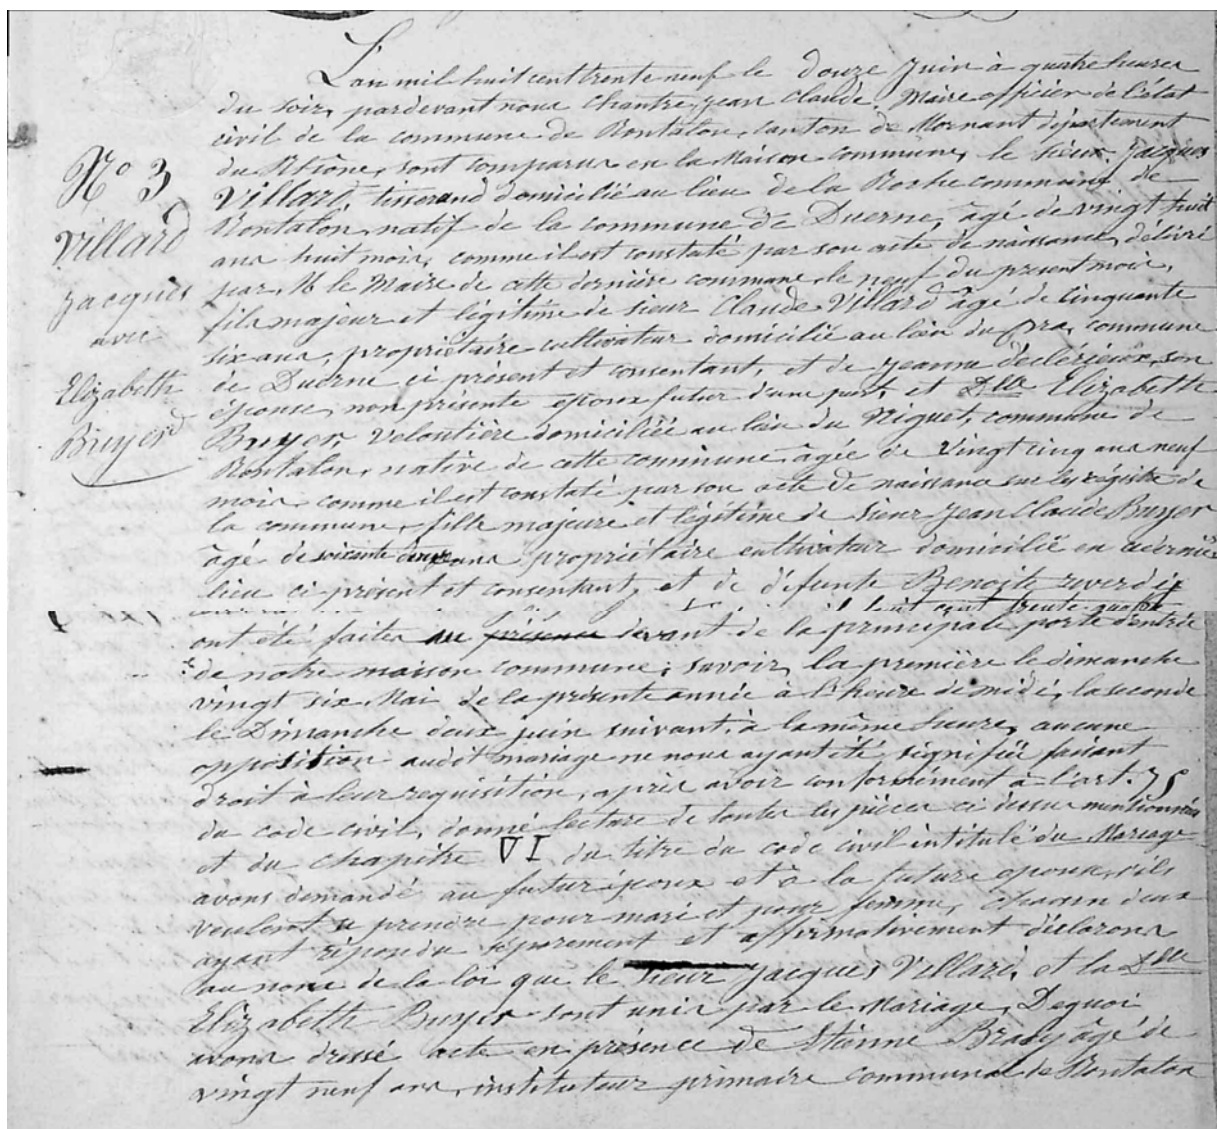 L'an mil huit cent trente neuf le douze Juin à quatre heures
du soir, pardevant nous Chantre, jean Claude. Maire officier de l'état
civil de la commune de Rontalon, canton de Mornant département
du Rhône, sont comparus en la Maison commune, le sieur. Jacques
Villard, tisserand domicilié au lieu de la Roche commune de
Rontalon, natif de la commune de Duerne, âgé de vingt huit
ans huit mois, comme il est constaté par son acte de naissance, délivré
par M le Maire de cette dernière commune le neuf du present mois,
fils majeur et légitime de sieur Claude Villard âgé de cinquante
six ans, propriétaire cultivateur domicilié au lieu du pra, commune
de Duerne ci présent et consentant, et de Jeanne déclérieux, son
épouse, non présente epoux futur d'une part, et Dlle Elizabeth
Buyer veloutière domiciliée au lieu du Niguet, commune de
Rontalon, native de cette commune, âgée de vingt cinq ans neuf
mois, comme il est constaté par son acte de naissance sur les régistre de
la commune, fille majeure et légitime de sieur Jean Claude Buyer
âgé de soixante ans, propriétaire cultivateur domicilié en dernier
lieu ci présent et consentant, et de défunte Benoite reverdy
cent trente quatre
ont été faites au présence devant de la principale porte d'entrée
de notre maison commune; savoir, la première le dimanche
vingt six Mai de la présente année à l'heure de midi, la seconde
le Dimanche deux juin suivant, à la même heure, aucune
opposition audit mariage ne nous ayant été signifiée faisant
droit à leur requisition, après avoir conformément à l'art. 75
du code civil, donné lecture de toutes les pièces ci dessus mentionnées
et du chapitre VI du titre du code civil intitulé du Mariage
avons demandé au futur époux et à la future epouse, s'ils
veulent se prendre pour mari et pour femme, chacun d'eux
ayant répondu séparement et affirmativement déclarons
au nom de la loi que le sieur Jacques Villard, et la Dlle
Elizabeth Buyer sont unis par le Mariage, Dequoi
avons dressé acte en présence de Etienne Brady âgé de
vingt neuf ans, instituteur primaire communal de Rontalon
N° 3
Villard
Jacques
avec
Elizabeth
Buyer